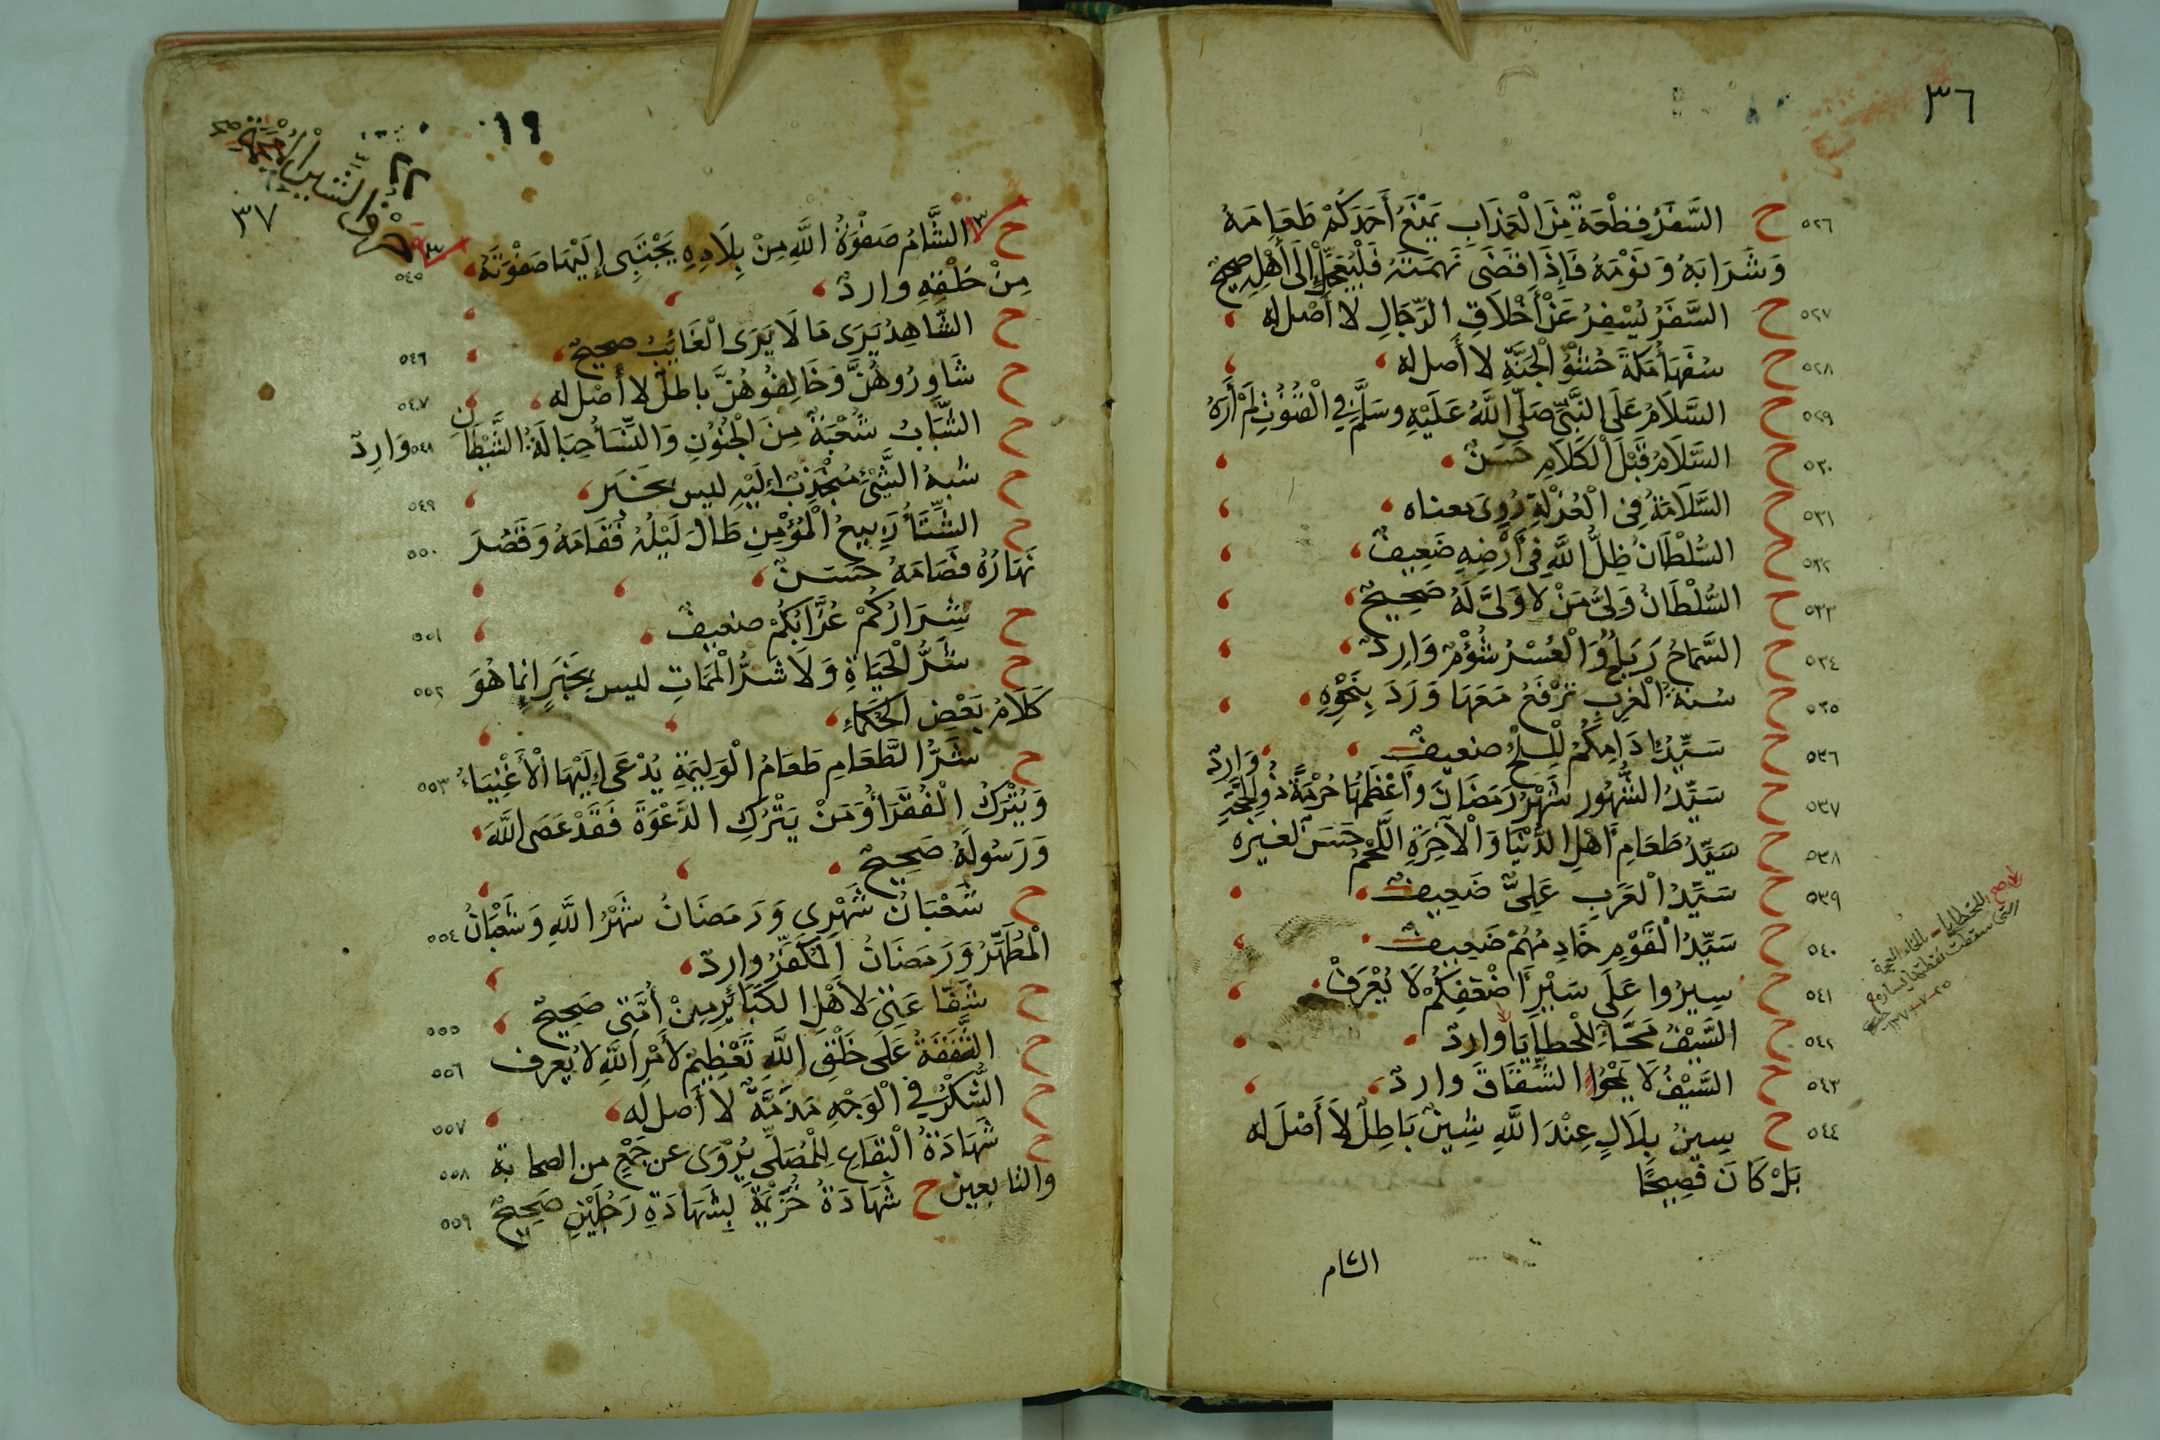 ٣٦
٥٢٦ ح السَّفَرُ قِطْعَةٌ مِنَ الْعَذَابِ يَمْنَعُ أَحَدَكُمْ طَعَامَهُ
وَشَرَابَهُ وَنَوْمَهُ فَإِذَا قَضَى نَهْمَتَهُ فَلْيُعَجِّلْ إِلَى أَهْلِهِ صحيح
٥٢٧ ح السَّفَرُ يُسْفِرُ عَنْ أَخْلَاقِ الرِّجَالِ لا أَصْل له
٥٢٨ ح سُفَهَاءُ مَكَّةَ حَشْوُ الْجَنَّةِ لا أصل له
٥٢٩ ح السَّلَامُ عَلَى النَّبِيِّ صَلَّى اللَّهُ عَلَيْهِ وسَلَّمَ فِي الْقُنُوتِ لَمْ أَرَهُ
٥٣٠ ح السَّلَامُ قَبْلَ الْكَلَامِ حَسَنٌ
٥٣١ ح السَّلَامَةُ فِي الْعُزْلَةِ رُوِيَ معناه
٥٣٢ ح السُّلْطَانُ ظِلُّ اللَّهِ فِي أَرْضِهِ ضَعِيفٌ
٥٣٣ ح السُّلْطَانُ وَلِيُّ مَنْ لا وَلِيَّ لَهُ صَحِيحٌ
٥٣٤ ح السَّمَاحُ رَبَاحٌ وَالْعُسْرُ شُؤْمٌ وَارِدٌ
٥٣٥ ح سُنَّةُ الْمَغْرِبِ تُرْفَعُ مَعَهَا وَرَدَ بِنَحْوِهِ
٥٣٦ ح سَيِّدُ إِدَامِكُمُ الْمِلْحُ ضعيف
٥٣٧ ح سَيِّدُ الشُّهُورِ شَهْرُ رَمَضَانَ وَأَعْظَمُهَا حُرْمَةً ذُو الْحِجَّةِ وَارِدٌ
٥٣٨ ح سَيِّدُ طَعَامِ أَهْلِ الدُّنْيَا وَالْآخِرَةِ اللَّحْمُ حَسَنٌ لغيره
٥٣٩ ح سَيِّدُ الْعَرَبِ عَلِيٌّ ضَعِيفٌ
٥٤٠ ح سَيِّدُ الْقَوْمِ خَادِمُهُمْ ضَعِيفٌ
٥٤١ ح سِيرُوا عَلَى سَيْرِ أَضْعَفِكُمْ لَا يُعْرَفْ
٥٤٢ ح السَّيْفُ مَحَّاءٌ لِلْحطايَا واردٌ
٥٤٣ ح السَّيْفُ لا يَمْحُوا النِّفَاقَ واردٌ
٥٤٤ ح سِينُ بِلَالٍ عِنْدَ اللَّهِ شِينٌ بَاطِلٌ لَا أَصْلَ له
بَلْ كَانَ فَصِيحًا
الشام
صح للخطايا - بالخاء المعجمة
١٩
٣٧
حرف الشين المعجمة
٥٤٥ ح الشَّامُ صَفْوَةُ اللَّهِ مِنْ بِلَادِهِ يَجْتَبِي إِلَيْهَا صَفْوَتَهُ
مِنْ خَلْقِهِ واردٌ
٥٤٦ ح الشَّاهِدُ يَرَى مَا لَا يَرَى الْغَائِبُ صحيحٌ
٥٤٧ ح شَاوِرُوهُنَّ وَخَالِفُوهُنَّ باطلٌ لا أَصْل له
٥٤٨ ح الشَّبَابُ شُعْبَةٌ مِنَ الْجُنُونِ وَالنِّسَاءُ حِبَالَةُ الشَّيْطَانِ وَارِدٌ
٥٤٩ ح شِبْهُ الشَّيْءِ مُنْجَذِبٌ إِلَيْهِ ليس بخبَر
٥٥٠ ح الشِّتَاءُ رَبِيعُ الْمُؤْمِنِ طَالَ لَيْلُهُ فَقَامَهُ وَقَصُرَ
نَهَارُهُ فَصَامَهُ حَسَنٌ
٥٥١ ح شِرَارُكُمْ عُزَّابُكُمْ ضعيفٌ
٥٥٢ ح شَرُّ الْحَيَاةِ وَلَا شَرُّ الْمَمَاتِ ليس بِخَبَرٍ إنما هُوَ
كَلَامُ بَعْضِ الحُكَمَاءِ
٥٥٣ ح شَرُّ الطَّعَامِ طَعَامُ الْوَلِيمَةِ يُدْعَى إِلَيْهَا الْأَغْنِيَاءُ
وَيُتْرَكُ الْفُقَرَاءُ وَمَنْ يَتْرُكِ الدَّعْوَةَ فَقَدْ عَصَى اللَّهَ
وَرَسُولَهُ صَحِيحٌ
٥٥٤ ح شَعْبَانُ شَهْرِي وَرَمَضَانُ شَهْرُ اللَّهِ وَشَعْبَانُ
الْمُطَهِّرُ وَرَمَضَانُ الْمُكَفِّرُ واردٌ
٥٥٥ ح شَفَاعَتِي لأَهْلِ الكَبَائِرِ مِنْ أُمَّتِي صَحِيحٌ
٥٥٦ ح الشَّفَقَةُ عَلَى خَلْقِ اللَّهِ تَعْظِيمٌ لأَمْرِ اللَّهِ لا يُعرف
٥٥٧ ح الشُّكْرُ فِي الْوَجْهِ مَذَمَّةٌ لا أَصل له
٥٥٨ ح شَهَادَةُ الْبِقَاعِ لِلْمُصَلِّي يُرْوَى عن جَمْعٍ من الصحابة
والتابعين
٥٥٩ ح شَهَادَةُ خُزَيْمَةَ بِشَهَادَةِ رَجُلَيْنِ صَحِيحٌ